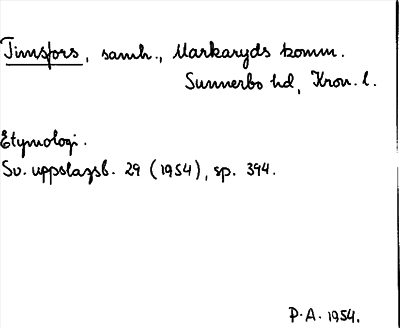 Timsfors, samh., Markaryds komm.
Sunnerbo hd, Kron. l.
Etymologi.
Sv. uppslagsb. 29 (1954), sp. 394.
P.A. 1954.